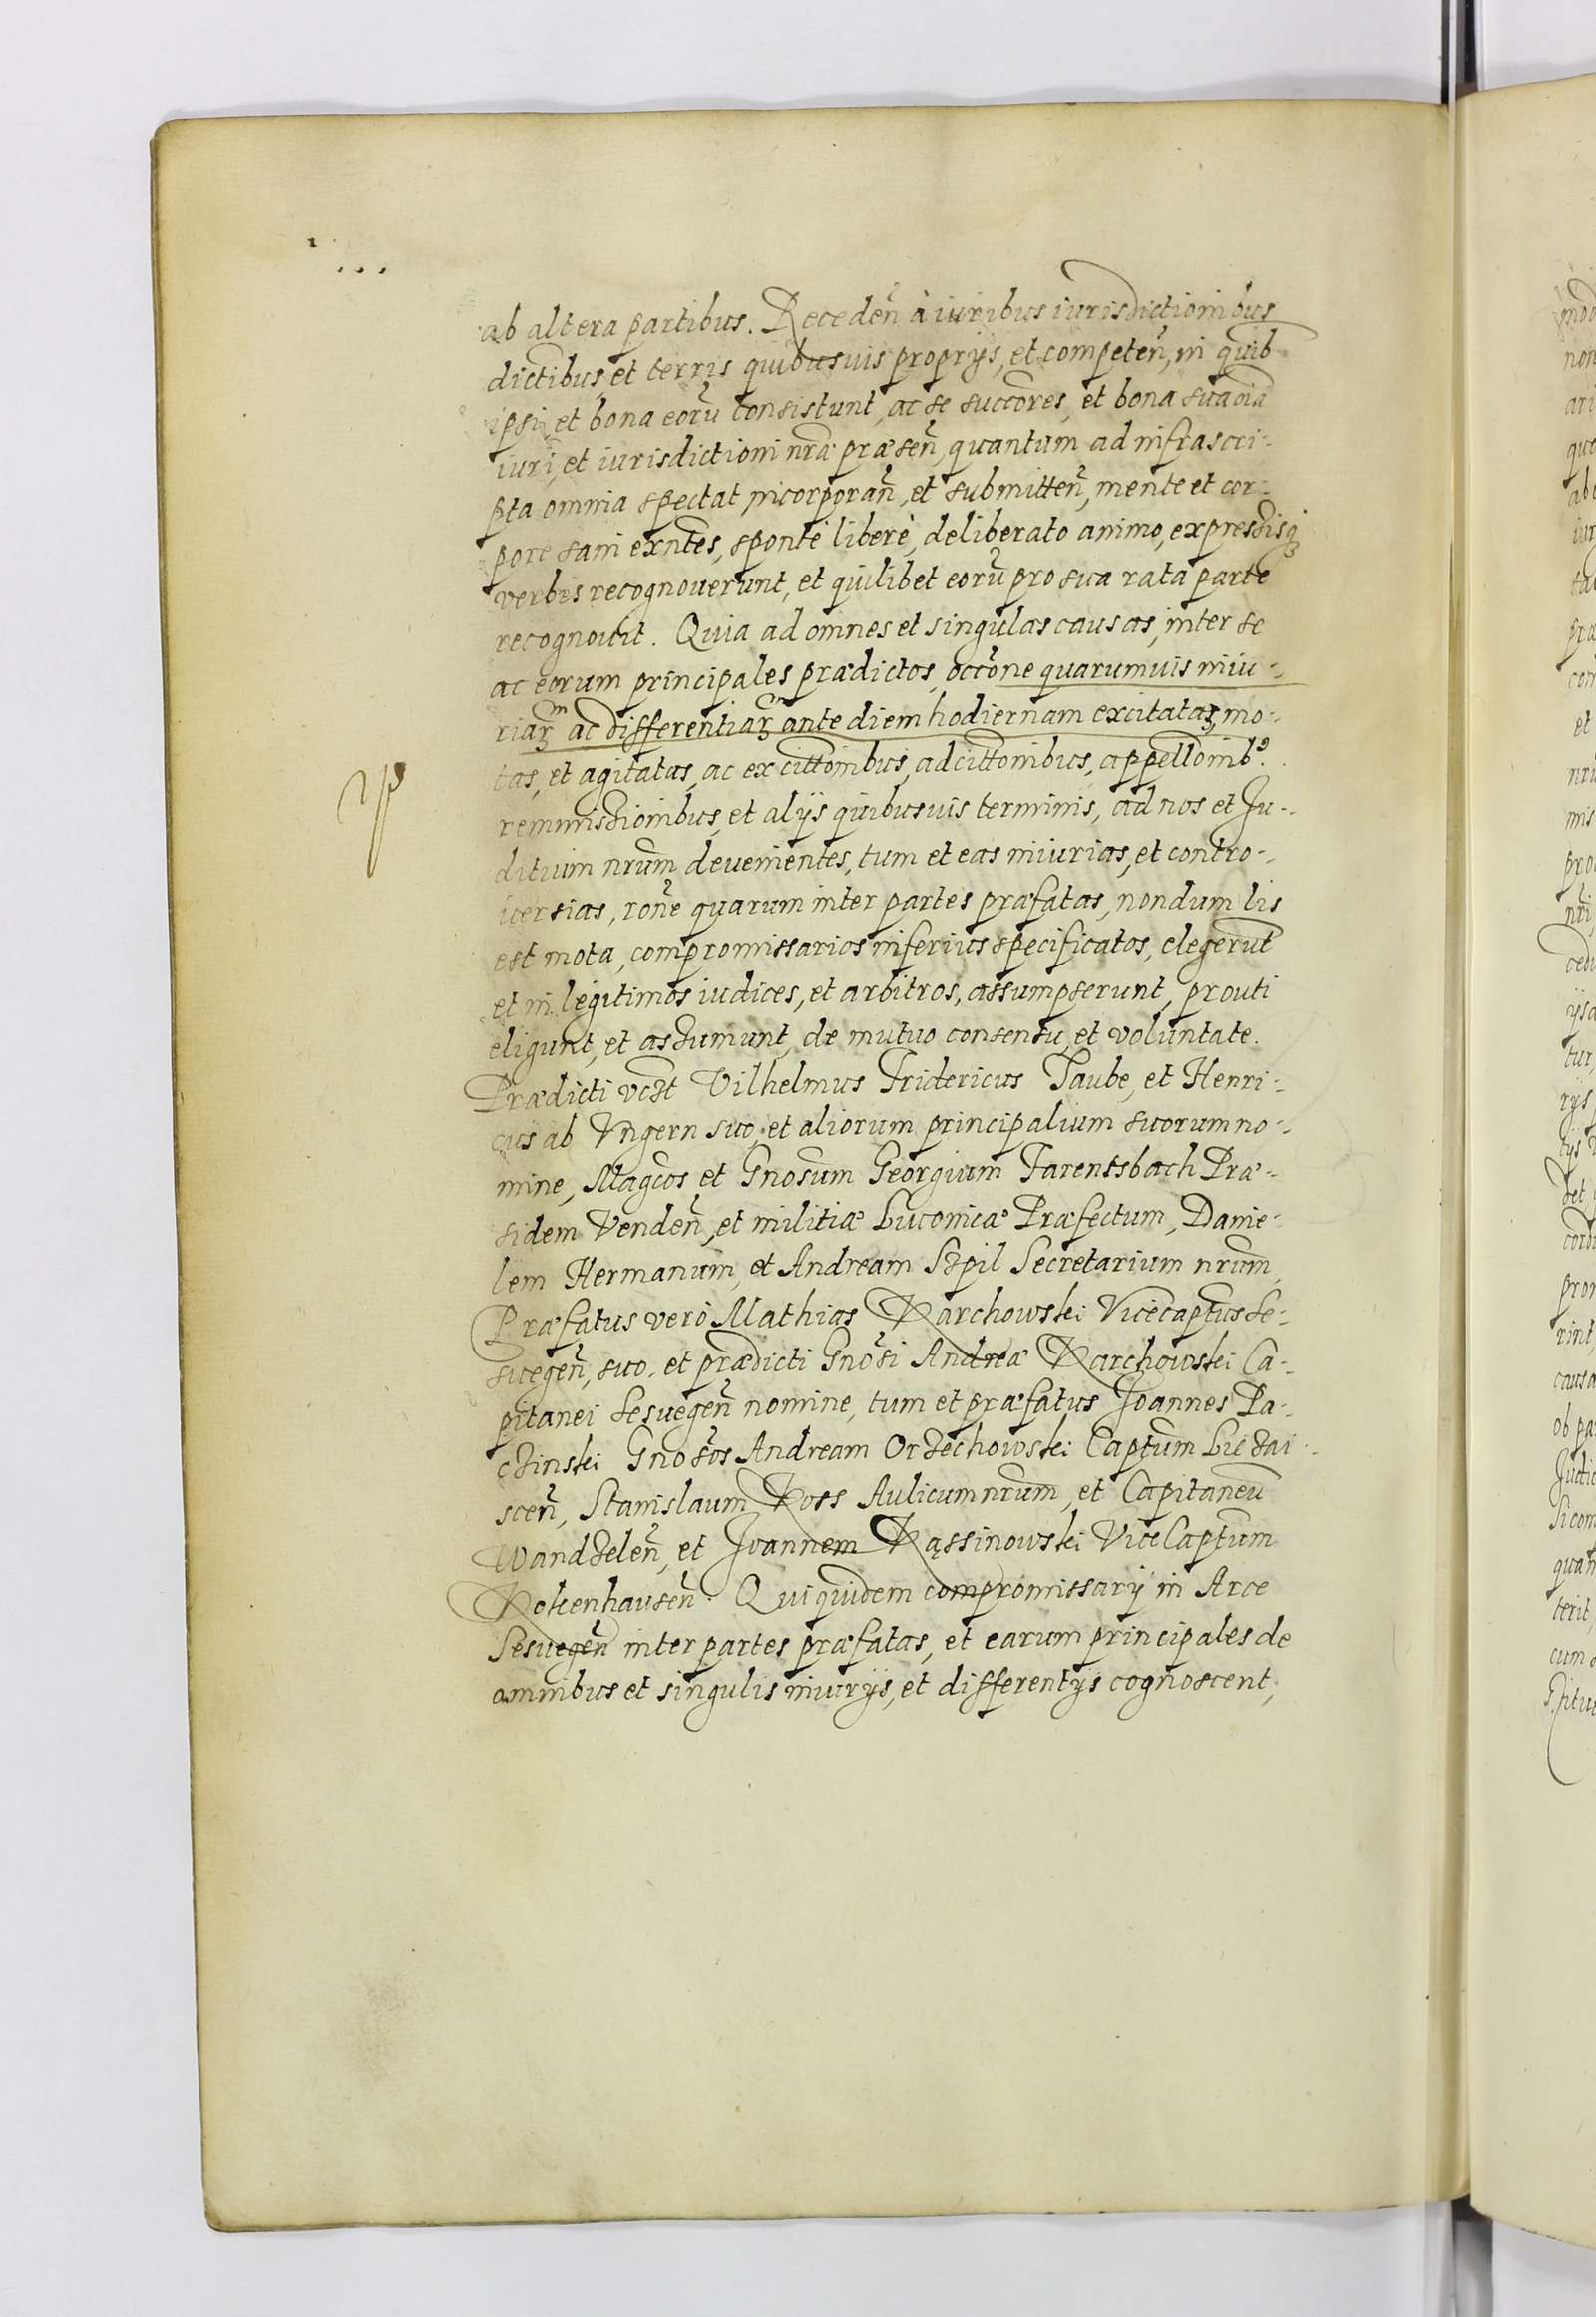 ab altera partibus. Receden̄ à iuribus iurisdictionibus
dictibus, et terris quibusuis proprijs, et competen̄, in quib
ipsi, et bona eorū consistunt, ac se succōres, et bona sua oīa
iuri, et iurisdictioni nrā præsen̄, quantum ad infrascri-
pta omnia spectat incorporan̄, et submitten̄, mente et cor-
pore sani exntēs, sponte liberè, deliberato animo, expressisq
verbis recognouerunt, et quilibet eorū pro sua rata parte
recognouit. Quia ad omnes et singulas causas, inter se
ac eorum principales prædictos, occōne quarumuis iniu-
riarꝝ ac differentiarꝝ ante diem hodiernam excitatas, mo-
tas, et agitatas, ac ex cittōnibus, adcittōnibus, appellōnib9.
remmissionibus, et alijs quibusuis terminis, ad nos et Ju-
ditium nrūm deuenientes, tum et eas iniurias, et contro-
uersias, rōne quarum inter partes præfatas, nondum lis
est mota, compromissarios inferius specificatos, elegerūt
et in legitimos iudices, et arbitros, assumpserunt, prouti
eligunt, et assumunt, de mutuo consensu, et voluntate.
Prædicti vczt Vilhelmus Fridericus Taube, et Henri-
cus ab Vngern suo, et aliorum principalium suorum no-
mine, Magcōs et Gnosūm Georgium Farentsbach Præ-
sidem Venden̄, et militiæ Liuonicæ Præfectum, Danie-
lem Hermanum, et Andream Szpil Secretarium nrūm,
Præfatus verò Mathias Karchowski Vicecaptūs Se-
suegen̄, suo. et prædicti Gnōsi Andreæ Karchowski Ca-
pitanei Sesuegen̄ nomine, tum et præfatus Joannes Pa-
czinski Gnosōs Andream Orzechowski Captūm Luczai
scen̄, Stanislaum Koss Aulicum nrūm, et Capitaneū
Wandzelen̄, et Joannem Kąssinowski ViceCaptūm
Kokenhausen̄. Qui quidem compromissarÿ in Arce
Sesuegen̄ inter partes præfatas, et earum principales de
omnibus et singulis iniurijs, et differentijs cognoscent,